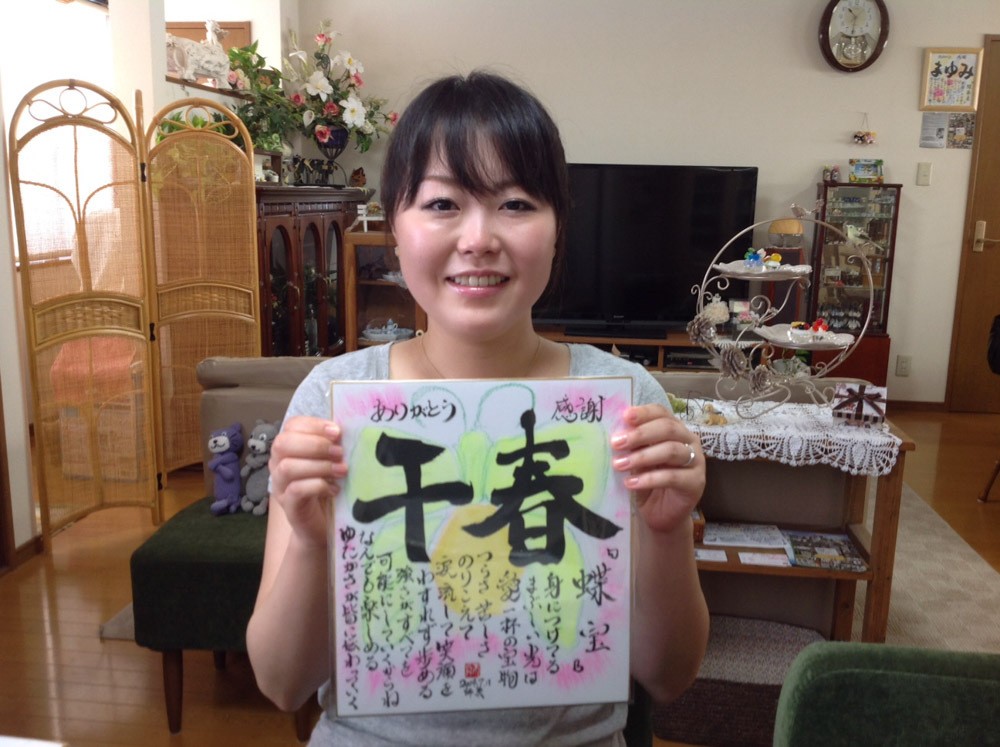 ありがとう
感謝
千春
蝶宝
身につけてる
まぶしい光は
愛一杯の宝物
つらさ苦しさ
のりこえて
して笑顔を
わすれず歩める
強さがすべてを
可能にしていくからね
なんでも楽しめる
ゆたかさが皆に伝わっていく
まゆみ